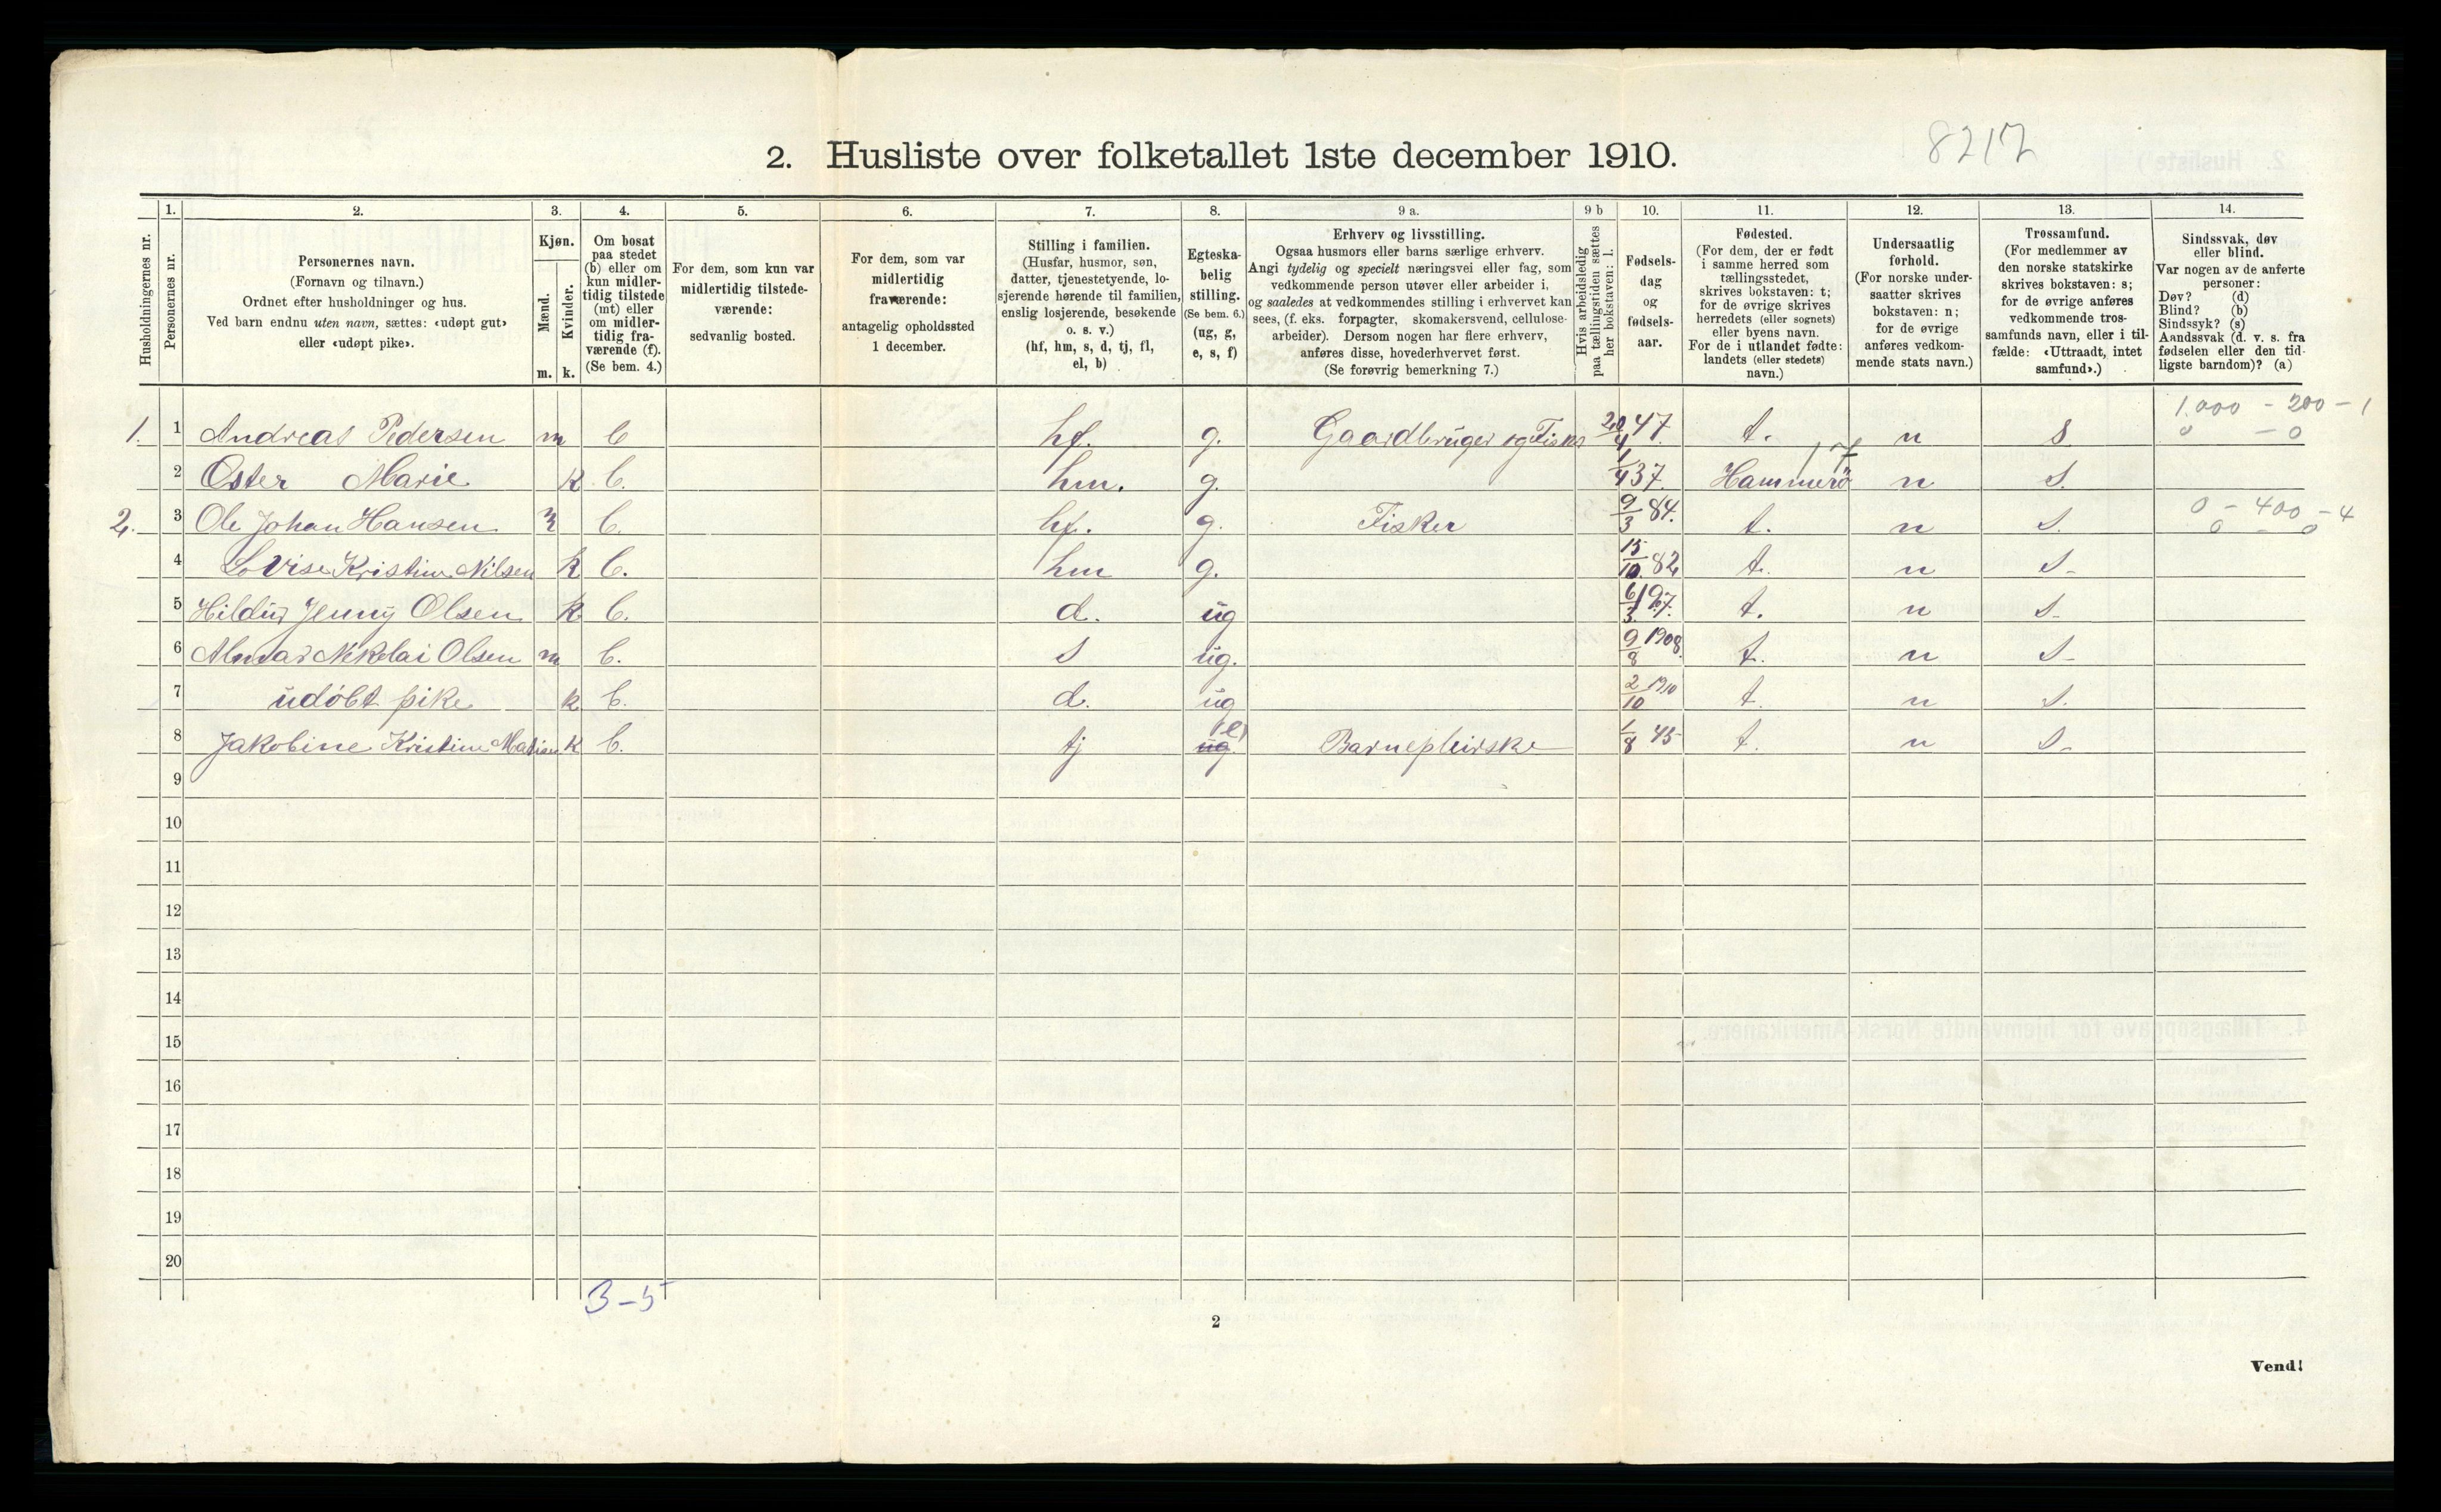 2. Husliste over folketallet 1ste december 1910.
8217
Husholdningernes nr.
1.
Personernes nr.
2.
Personernes navn.
(Fornavn og tilnavn.)
Ordnet efter husholdninger og hus.
Ved barn endnu uten navn, sættes: «udøpt gut»
eller «udøpt pike».
3.
Kjøn.
Mænd.
Kvinder.
m. k.
4.
Om bosat
paa stedet
(b) eller om
kun midler-
tidig tilstede
(mt) eller
om midler-
tidig fra-
værende (f).
(Se bem. 4.)
5.
For dem, som kun var
midlertidig tilstede-
værende:
sedvanlig bosted.
6.
For dem, som var
midlertidig
fraværende:
antagelig opholdssted
1 december.
7.
Stilling i familien.
(Husfar, husmor, søn,
datter, tjenestetyende, lo-
sjerende hørende til familien,
enslig losjerende, besøkende
o. s. v.)
(hf, hm, s, d, tj, fl,
el, b)
8.
Egteska-
belig
stilling.
(Se bem. 6.)
(ug, g,
e, s, f)
9 a.
Erhverv og livsstilling.
Ogsaa husmors eller barns særlige erhverv.
Angi tydelig og specielt næringsvei eller fag, som
vedkommende person utøver eller arbeider i,
og saaledes at vedkommendes stilling i erhvervet kan
sees, (f. eks. forpagter, skomakersvend, cellulose-
arbeider). Dersom nogen har flere erhverv,
anføres disse, hovederhvervet først.
(Se forøvrig bemerkning 7.)
9 b
Hvis arbeidsledig
paa tællingstiden sættes
her bokstaven: l.
10.
Fødsels-
dag
og
fødsels-
aar.
11.
Fødested.
(For dem, der er født
i samme herred som
tællingsstedet,
skrives bokstaven: t;
for de øvrige skrives
herredets (eller sognets)
eller byens navn.
For de i utlandet fødte:
landets (eller stedets)
navn.)
12.
Undersaatlig
forhold.
(For norske under-
saatter skrives
bokstaven: n;
for de øvrige
anføres vedkom-
mende stats navn.)
13.
Trossamfund.
(For medlemmer av
den norske statskirke
skrives bokstaven: s;
for de øvrige anføres
vedkommende tros-
samfunds navn, eller i til-
fælde: «Uttraadt, intet
samfund».)
14.
Sindssvak, døv
eller blind.
Var nogen av de anførte
personer:
Døv? (d)
Blind? (b)
Sindssyk? (s)
Aandssvak (d. v. s. fra
fødselen eller den tid-
ligste barndom)? (a)
1. 1 Andreas Pedersen m b hf. g. Gaardbruger og Fisker 20/4 47. t. n s 1.000 - 200 - 1
0 - 0
2 Ester Marie k b. hm. g. 1/4 37. Hammerö 17 n s.
2. 3 Ole Johan Hansen m b. hf. g. Fisker 9/3 84. t. n s. 0 - 400 - 4
0 - 0
4 Lovise Kristine Nilsen k b. hm g. 15/10. 82 t. n s-
5 Hildur Jenny Olsen k b. d. ug 6/3 1907. t. n s-
6 Almar Nikolai Olsen m b. s ug. 9/8 1908. t. n s-
7 udöbt pike k b. d. ug 2/10 1910 t. n s.
8 Jakobine Kristine k b. tj ug. e) Barnepleirske 1/8 45 t. n s-
9
10
11
12
13
14
15
16
17
18
19
20
3-5
2
Vend!